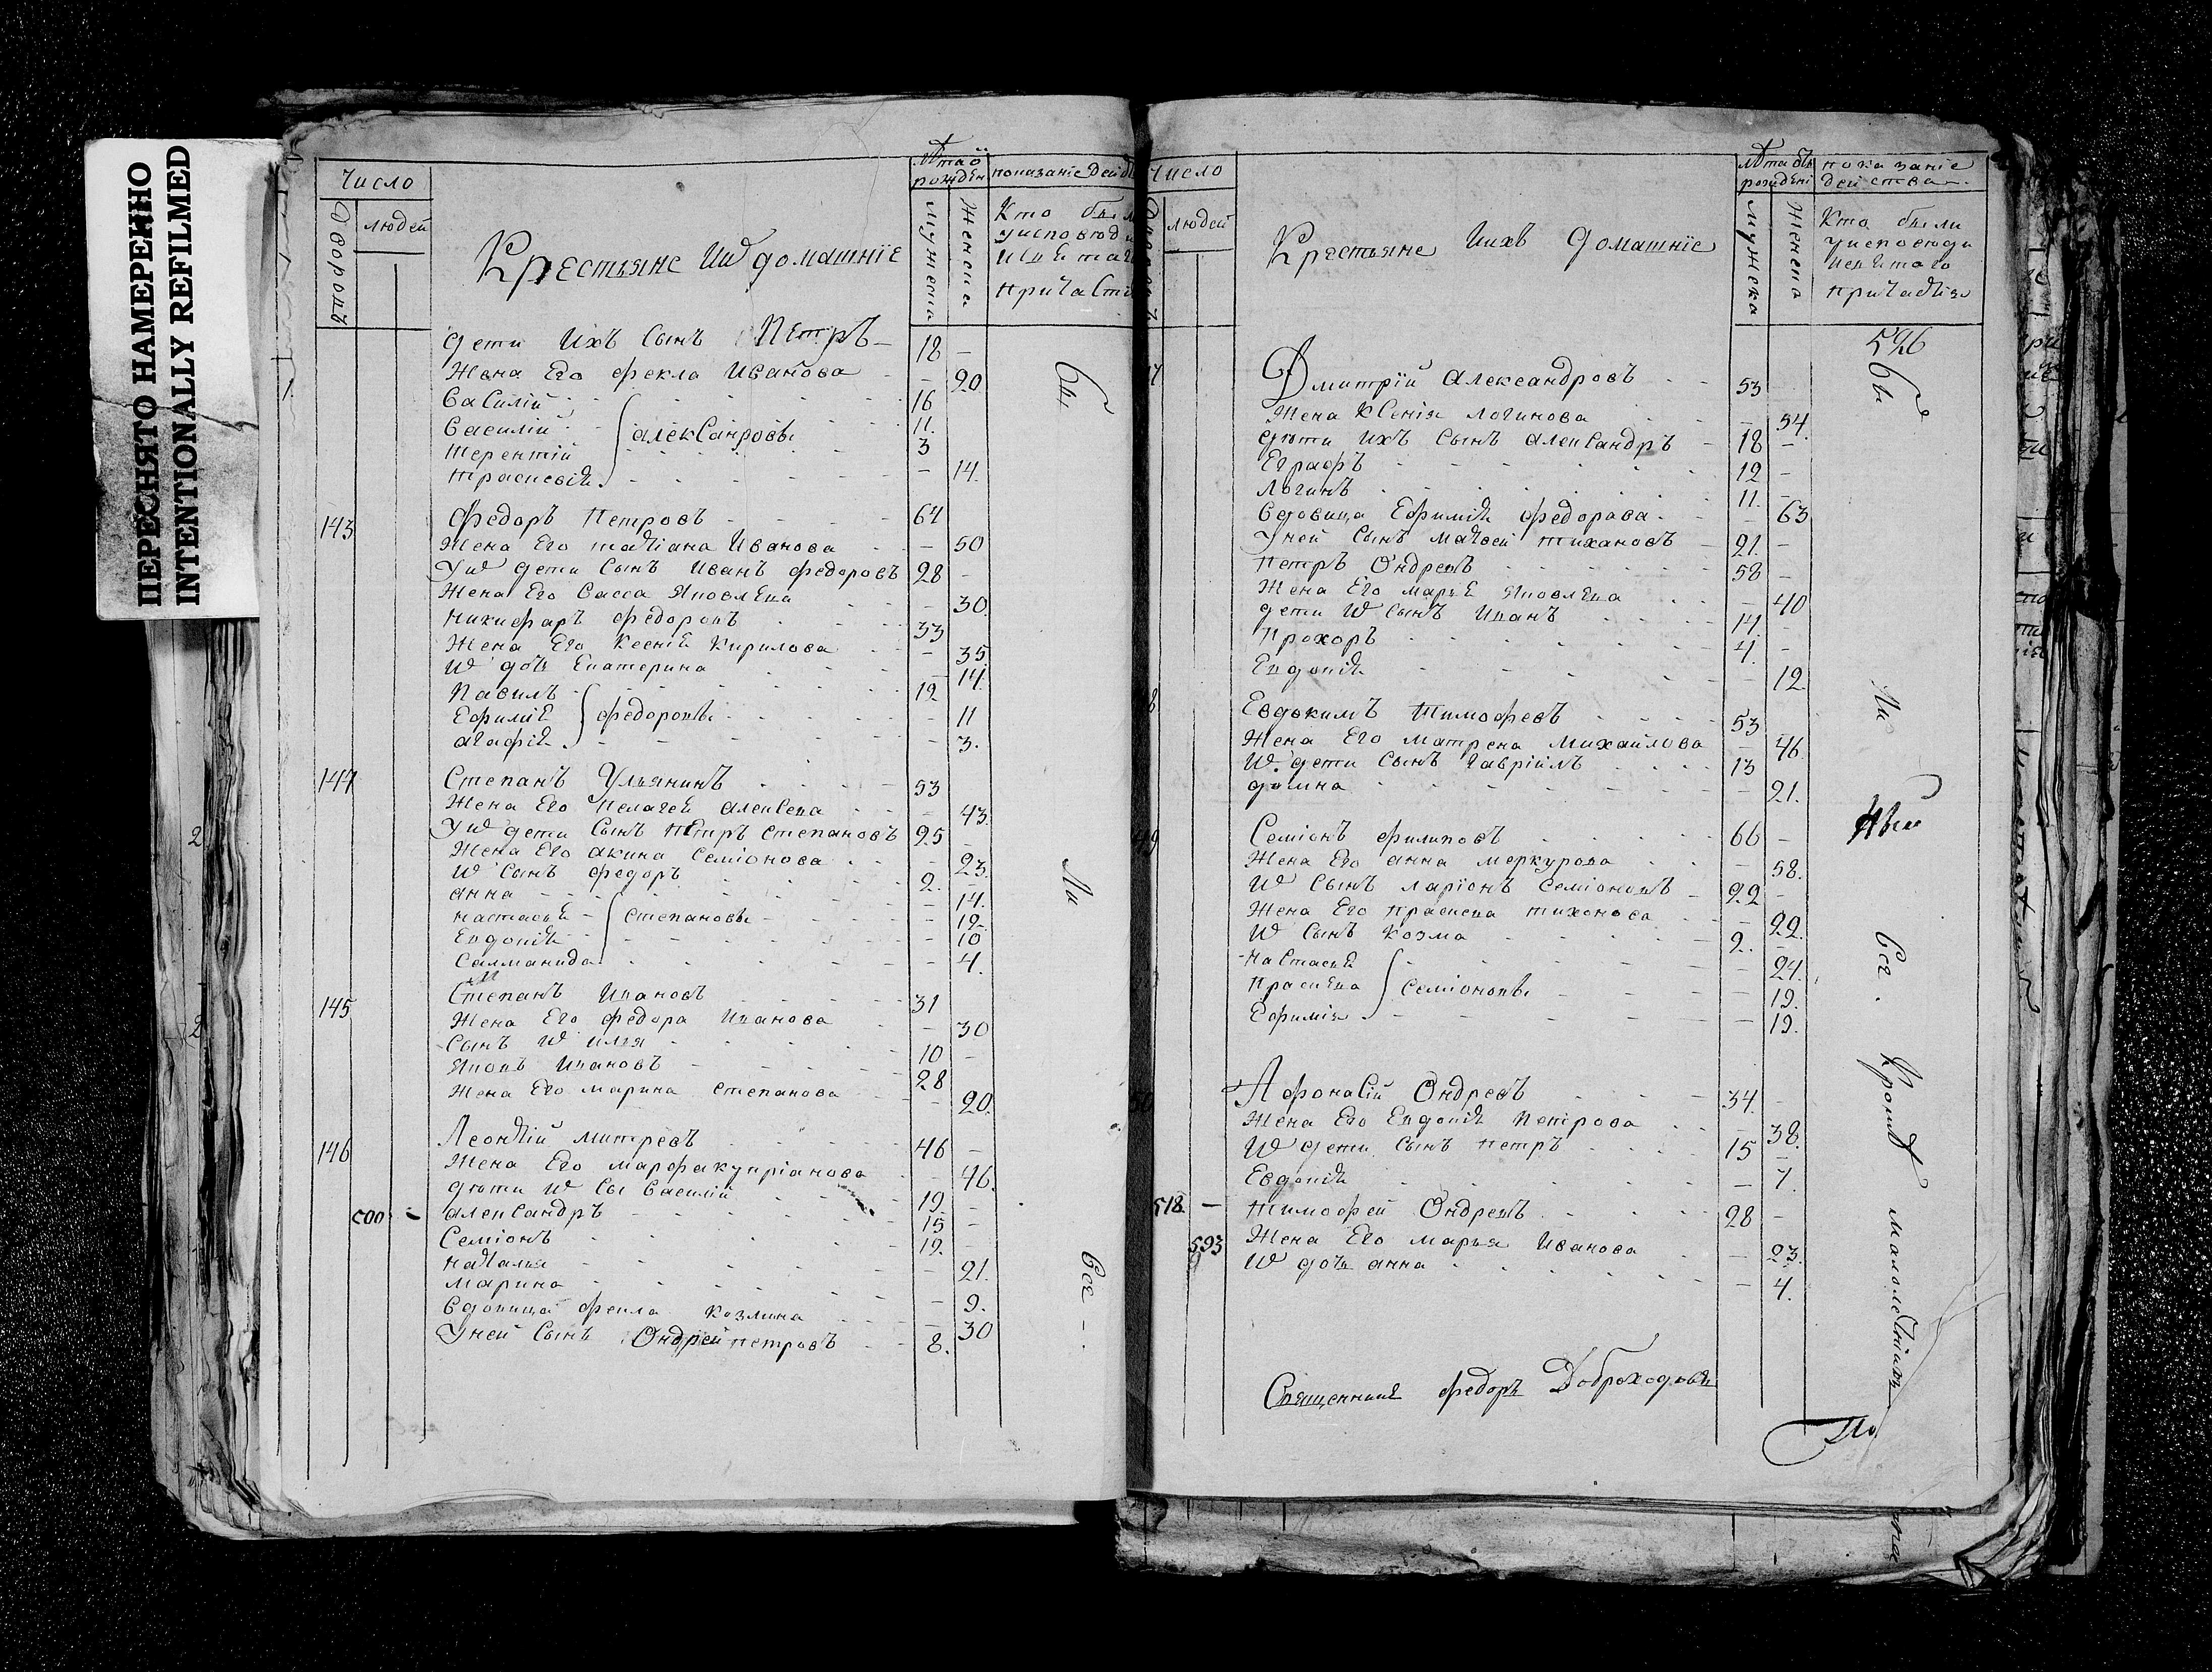 ПЕРЕСНЯТО НАМЕРЕННО
INTENTIONALLY REFILMED
Число
Дворовъ
людей
Лѣта рожден
мужеска
женска
показанiе дейс
Кто были
у исповеди
и святаго
причасти
Крестьяне и ихъ домашнiе
дети ихъ сынъ Петръ 18 -
жена его Фекла Иванова - 20
Василiй 16
Василiй 11.
Терентiй Александровы 3
Прасковiя - 14.
143 Федоръ Петровъ 64
Жена его татiана Иванова - 50
У них дети сынъ Иванъ Федоровъ 28 -
Жена его Васса Яковлева - 30.
Никифаръ Федоровъ 33
Жена его Ксенiя Кирилова - 35
их дочь Екатерина - 14.
Павилъ 12
Ефимiя Федоровы - 11
Агафiя - 3.
144 Степанъ Ульянинъ 53
Жена его Пелагея Алексеева - 43
У их дети сынъ Петръ Степановъ 25 -
Жена его Акина Семiонова - 23.
их сынъ Федоръ 2. -
Анна - 14.
Настасья Степановы - 12
Евдокiя - 10
Саламанида - 4.
145 Степанъ Ивановъ 31
Жена его Федора Иванова - 30
Сынъ их Илья 10 -
Яковъ Ивановъ 28
Жена его Марина Степанова - 20.
146 Леонтiй Митревъ 46 -
Жена его Марфа Купрiанова - 46.
дѣти их сы Василiй 19 -
Александръ 15 -
Семiонъ 12. -
Наталья - 21.
Марина - 9.
Вдовица Фекла Козмина - 30
У ней сынъ Ондрей Петровъ 8.
Были
Вси -
Число
людей
Лѣта рожденi
мужеска
женска
показанiе действа
Кто были
у исповеди
и святаго
причастiя
Крестьяне и ихъ домашнiе
526
Дмитрiй Александровъ 53
Жена Ксенiя Логинова - 54.
дѣти ихъ сынъ Александръ 18 -
Евграфъ 12 -
Логинъ 11. -
Вдовица Ефимiя Федорава - 63
У ней сынъ Матвей Тихановъ 21 -
Петръ Ондревъ 58 -
Жена его Марья Яковлева - 40
дети их сынъ Иванъ 14.
Прохоръ 4. -
Евдокiя - 12
Евдокимъ Тимофевъ 53
Жена его Матрена Михайлова - 46
их дети сынъ Гаврiилъ 13
домна - 21.
Семiонъ Филиповъ 66 -
Жена его Анна Меркурова - 58.
их сынъ Ларiонъ Семiоновъ 22 -
Жена его Прасковa Тихонова - 22.
их сынъ Козма 2. -
Настасья - 24.
Прасковa Семiоновы - 19.
Ефимiя - 19.
Афонасiй Ондревъ 34. -
Жена его Евдокiя Петрова - 38.
их дети сынъ Петръ 15 -
Евдокiя - 7.
518 - Тимофей Ондревъ 28 -
593 Жена его Марья Иванова - 23.
их дочь Анна - 4.
Священникъ Федоръ Доброходовъ